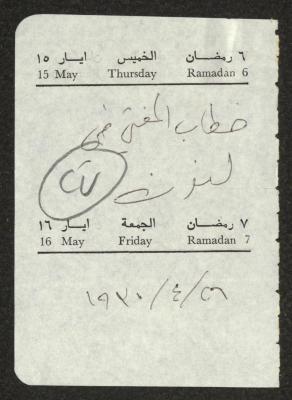 ٦ رمضان الخميس ايار ١٥
15 May Thursday Ramadan 6
خطاب المفتي في
لندن
٧ رمضان الجمعة ايار ١٦
16 May Friday Ramadan 7
١٩٣٠/٤/٢٦